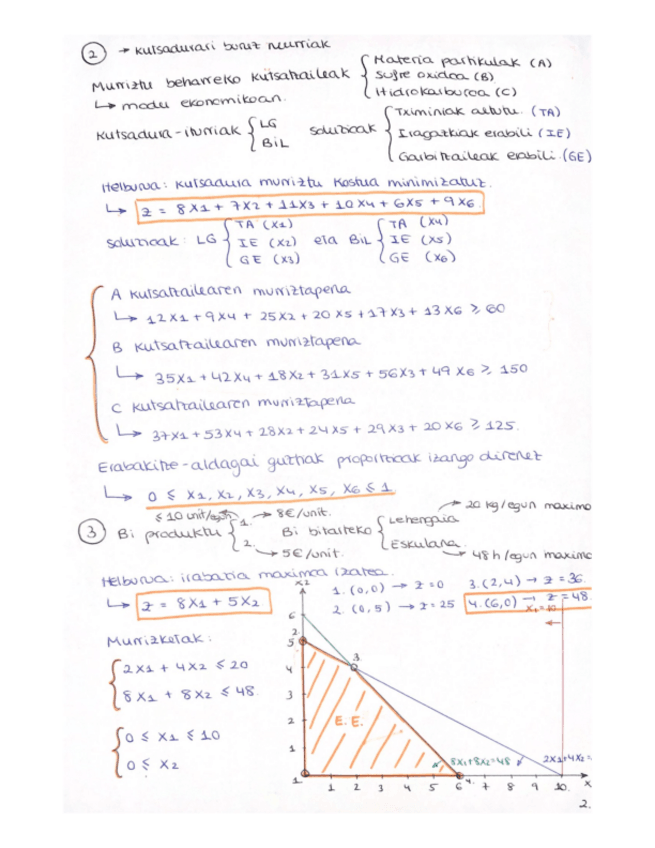 2 → kutsadurari buruz neurriak
Murriztu beharreko kutsatzaileak { Materia partikulak (A)
Sufre oxidoa (B)
Hidrokarburoa (C)
↳ modu ekonomikoan.
Kutsadura-iturriak { LG
BiL
soluzioak { Tximiniak altutu. (TA)
Iragazkiak erabili (IE)
Garbitzaileak erabili. (GE)
Helburua: kutsadura murriztu kostua minimizatuz.
↳ z = 8x1 + 7x2 + 11x3 + 10x4 + 6x5 + 9x6.
soluzioak: LG { TA (x1)
IE (x2)
GE (x3)
eta BiL { TA (x4)
IE (x5)
GE (x6)
A kutsatzailearen murriztapena
↳ 12x1 + 9x4 + 25x2 + 20x5 + 17x3 + 13x6 ≥ 60
B kutsatzailearen murriztapena
↳ 35x1 + 42x4 + 18x2 + 31x5 + 56x3 + 49x6 ≥ 150
C kutsatzailearen murriztapena
↳ 37x1 + 53x4 + 28x2 + 24x5 + 29x3 + 20x6 ≥ 125.
Erabakitze-aldagai guztiak proportzioak izango direnez
↳ 0 ≤ x1, x2, x3, x4, x5, x6 ≤ 1.
3 Bi produktu { 1. → 8€/unit.
2. → 5€/unit.
≤ 10 unit/egun
Bi bitarteko { Lehengaia → 20 kg/egun maximo
Eskulana. → 48h/egun maximo
Helburua: irabazia maximoa izatea.
↳ z = 8x1 + 5x2
1. (0,0) → z = 0
2. (0,5) → z = 25
3. (2,4) → z = 36.
4. (6,0) → z = 48.
Murrizketak:
2x1 + 4x2 ≤ 20
8x1 + 8x2 ≤ 48.
0 ≤ x1 ≤ 10
0 ≤ x2
x2
6
2.
5
4
3
2
1
3.
E.E.
x1 = 10.
8x1+8x2=48
2x1+4x2=
1.
1 2 3 4 5 6 4. 7 8 9 10. x
2.